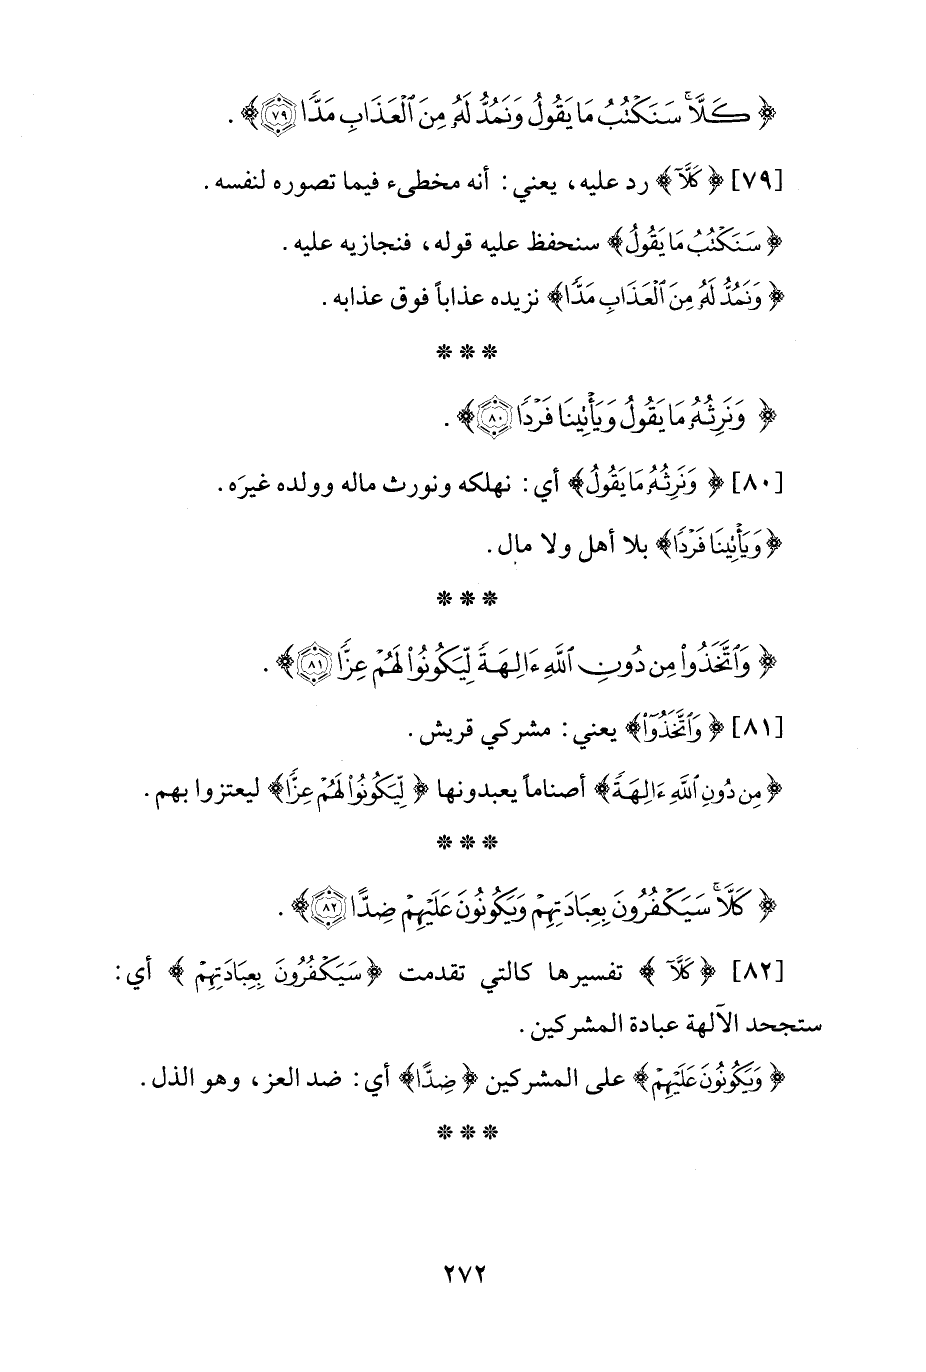 ﴿ كَلَّا ۚ سَنَكْتُبُ مَا يَقُولُ وَنَمُدُّ لَهُۥ مِنَ ٱلْعَذَابِ مَدًّا ٧٩﴾ .
[٧٩] ﴿ كَلَّآ﴾ رد عليه، يعني: أنه مخطىء فيما تصوره لنفسه.
﴿ سَنَكْتُبُ مَا يَقُولُ﴾ سنحفظ عليه قوله، فنجازيه عليه.
﴿ وَنَمُدُّ لَهُۥ مِنَ ٱلْعَذَابِ مَدًّا﴾ نزيده عذاباً فوق عذابه.
* * *
﴿ وَنَرِثُهُۥ مَا يَقُولُ وَيَأْتِينَا فَرْدًا ٨٠﴾ .
[٨٠] ﴿ وَنَرِثُهُۥ مَا يَقُولُ﴾ أي: نهلكه ونورث ماله وولده غيرَه.
﴿ وَيَأْتِينَا فَرْدًا﴾ بلا أهل ولا مال.
* * *
﴿ وَٱتَّخَذُوا۟ مِن دُونِ ٱللَّهِ ءَالِهَةً لِّيَكُونُوا۟ لَهُمْ عِزًّا ٨١﴾ .
[٨١] ﴿ وَٱتَّخَذُوٓا۟﴾ يعني: مشركي قريش.
﴿ مِن دُونِ ٱللَّهِ ءَالِهَةً﴾ أصناماً يعبدونها ﴿ لِّيَكُونُوا۟ لَهُمْ عِزًّا﴾ ليعتزوا بهم.
* * *
﴿ كَلَّا ۚ سَيَكْفُرُونَ بِعِبَادَتِهِمْ وَيَكُونُونَ عَلَيْهِمْ ضِدًّا ٨٢﴾ .
[٨٢] ﴿ كَلَّآ ﴾ تفسيرها كالتي تقدمت ﴿ سَيَكْفُرُونَ بِعِبَادَتِهِمْ ﴾ أي:
ستجحد الآلهة عبادة المشركين.
﴿ وَيَكُونُونَ عَلَيْهِمْ﴾ على المشركين ﴿ ضِدًّا﴾ أي: ضد العز، وهو الذل.
* * *
٢٧٢